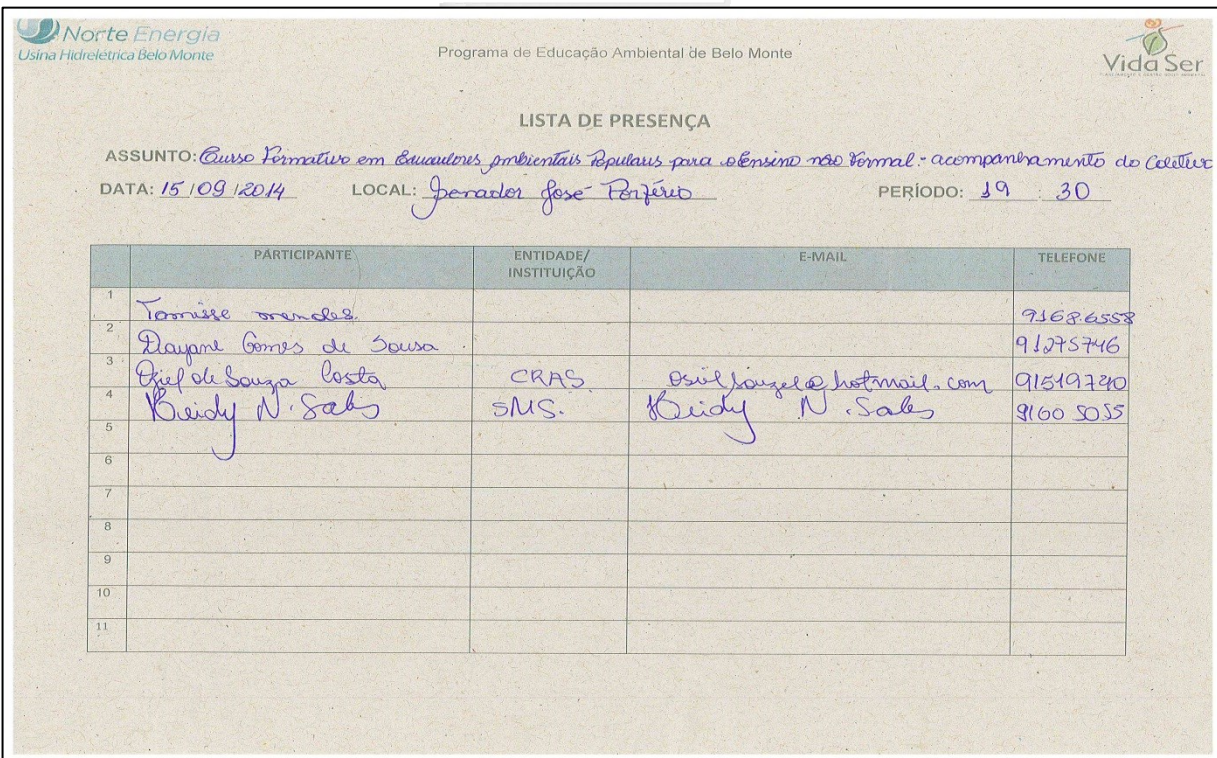 Norte Energia
Usina Hidreletrica Belo Monte
Programa de Educação Ambiental de Belo Monte
Vida Ser
LISTA DE PRESENÇA
ASSUNTO: Curso Formativo em Educadores Ambientais Populares para o Ensino não Formal - acompanhamento do Coletivo
DATA: 15/09/2014 LOCAL: Senador José Porfírio PERÍODO: 19:30
PARTICIPANTE ENTIDADE/INSTITUIÇÃO E-MAIL TELEFONE
1 mendes 9168.6558
2 Dayane Gomes de Sousa 91275746
3 de Souza Costa CRAS @hotmail.com 91519720
4 N. Sales SMS. N. Sales 9160 5055
5
6
7
8
9
10
11